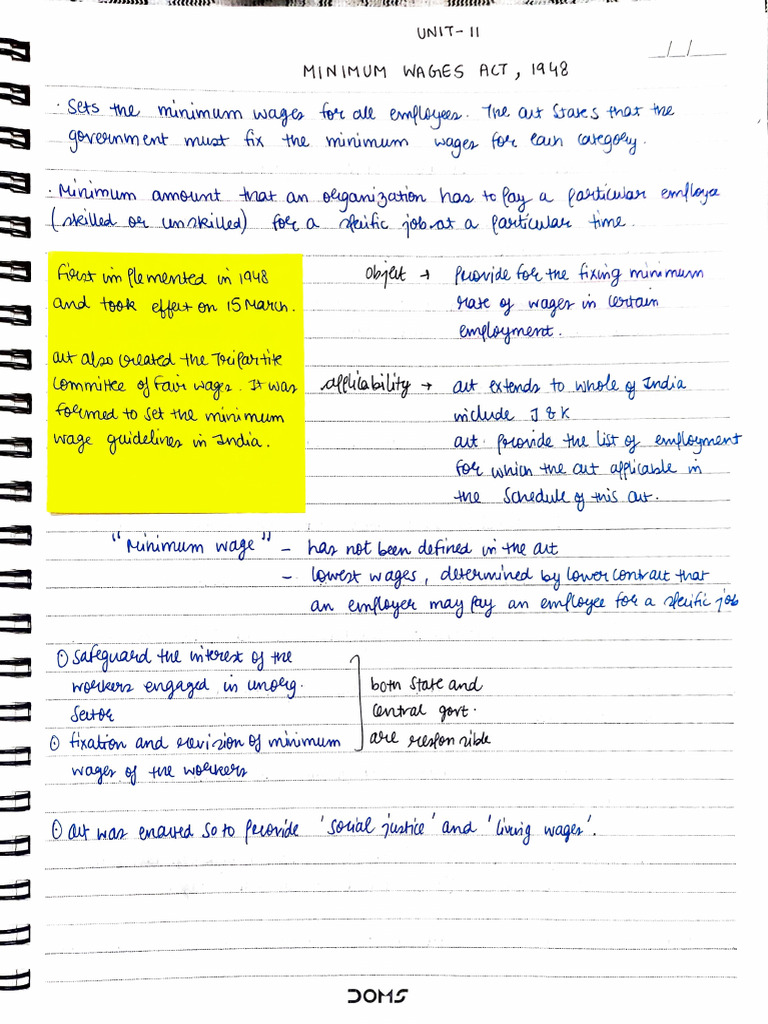 UNIT-II
__/__/____
MINIMUM WAGES ACT, 1948
· Sets the minimum wages for all employees. The act states that the
government must fix the minimum wages for each category.
· Minimum amount that an organization has to pay a particular employee
(skilled or unskilled) for a specific job at a particular time.
First implemented in 1948
and took effect on 15 March.
act also created the Tripartite
Committee of Fair wages. It was
formed to set the minimum
wage guidelines in India.
Object → Provide for the fixing minimum
rate of wages in certain
employment.
applicability → act extends to whole of India
include J & K
act provide the list of employment
for which the act applicable in
the Schedule of this act.
"Minimum wage" - has not been defined in the act
- lowest wages, determined by lower contract that
an employer may pay an employee for a specific job
⊙ Safeguard the interest of the
workers engaged in unorg.
Sector
⊙ fixation and revision of minimum
wages of the workers
both State and
Central govt.
are responsible
⊙ act was enacted so to provide 'social justice' and 'living wages'.
DOMS